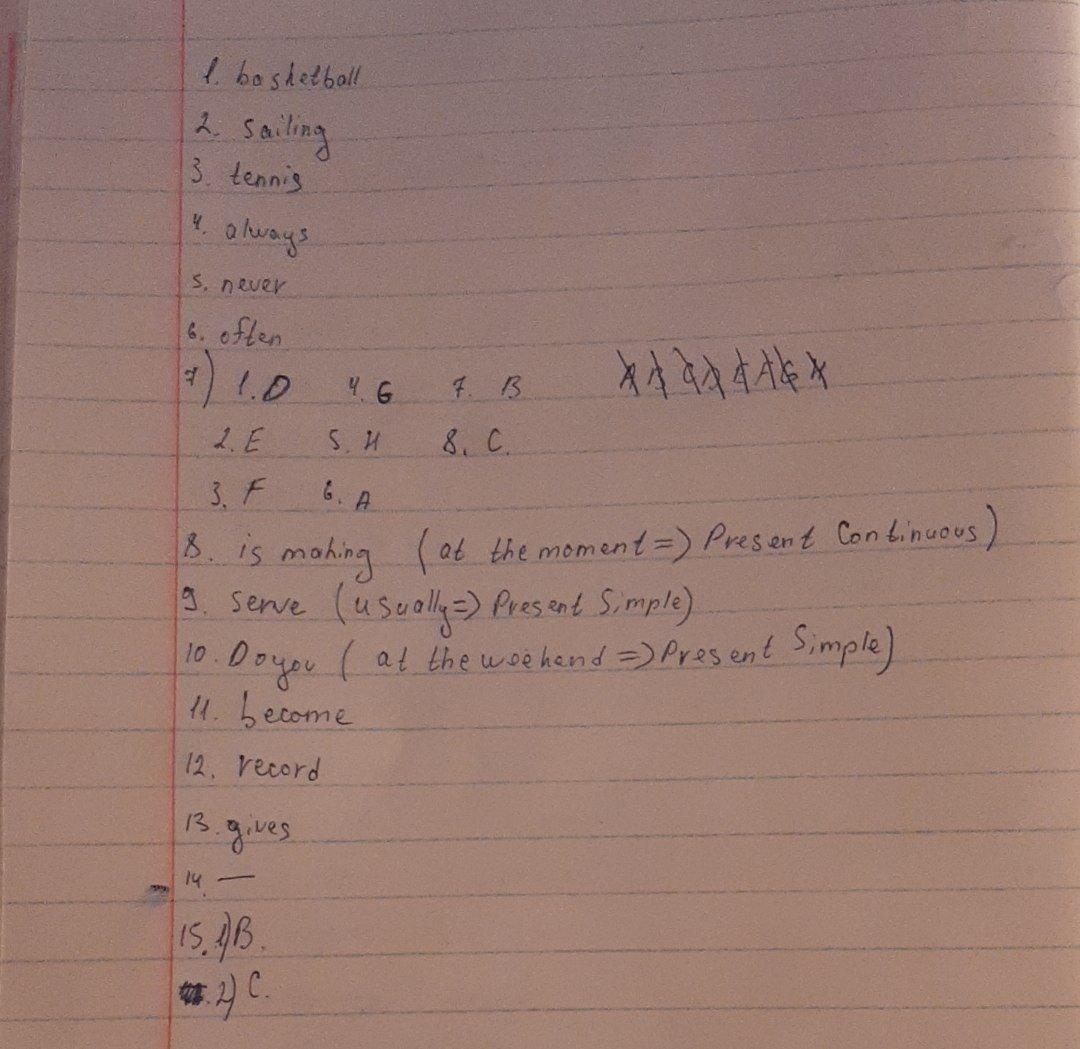 1. basketball
2. sailing
3. tennis
4. always
5. never
6. often
7) 1. D 4. G 7. B
2. E 5. H 8. C.
3. F 6. A
8. is making (at the moment => Present Continuous)
9. serve (usually => Present Simple)
10. Do you ( at the weekend => Present Simple)
11. become
12. record
13. gives
14. —
15. 1) B.
2) C.